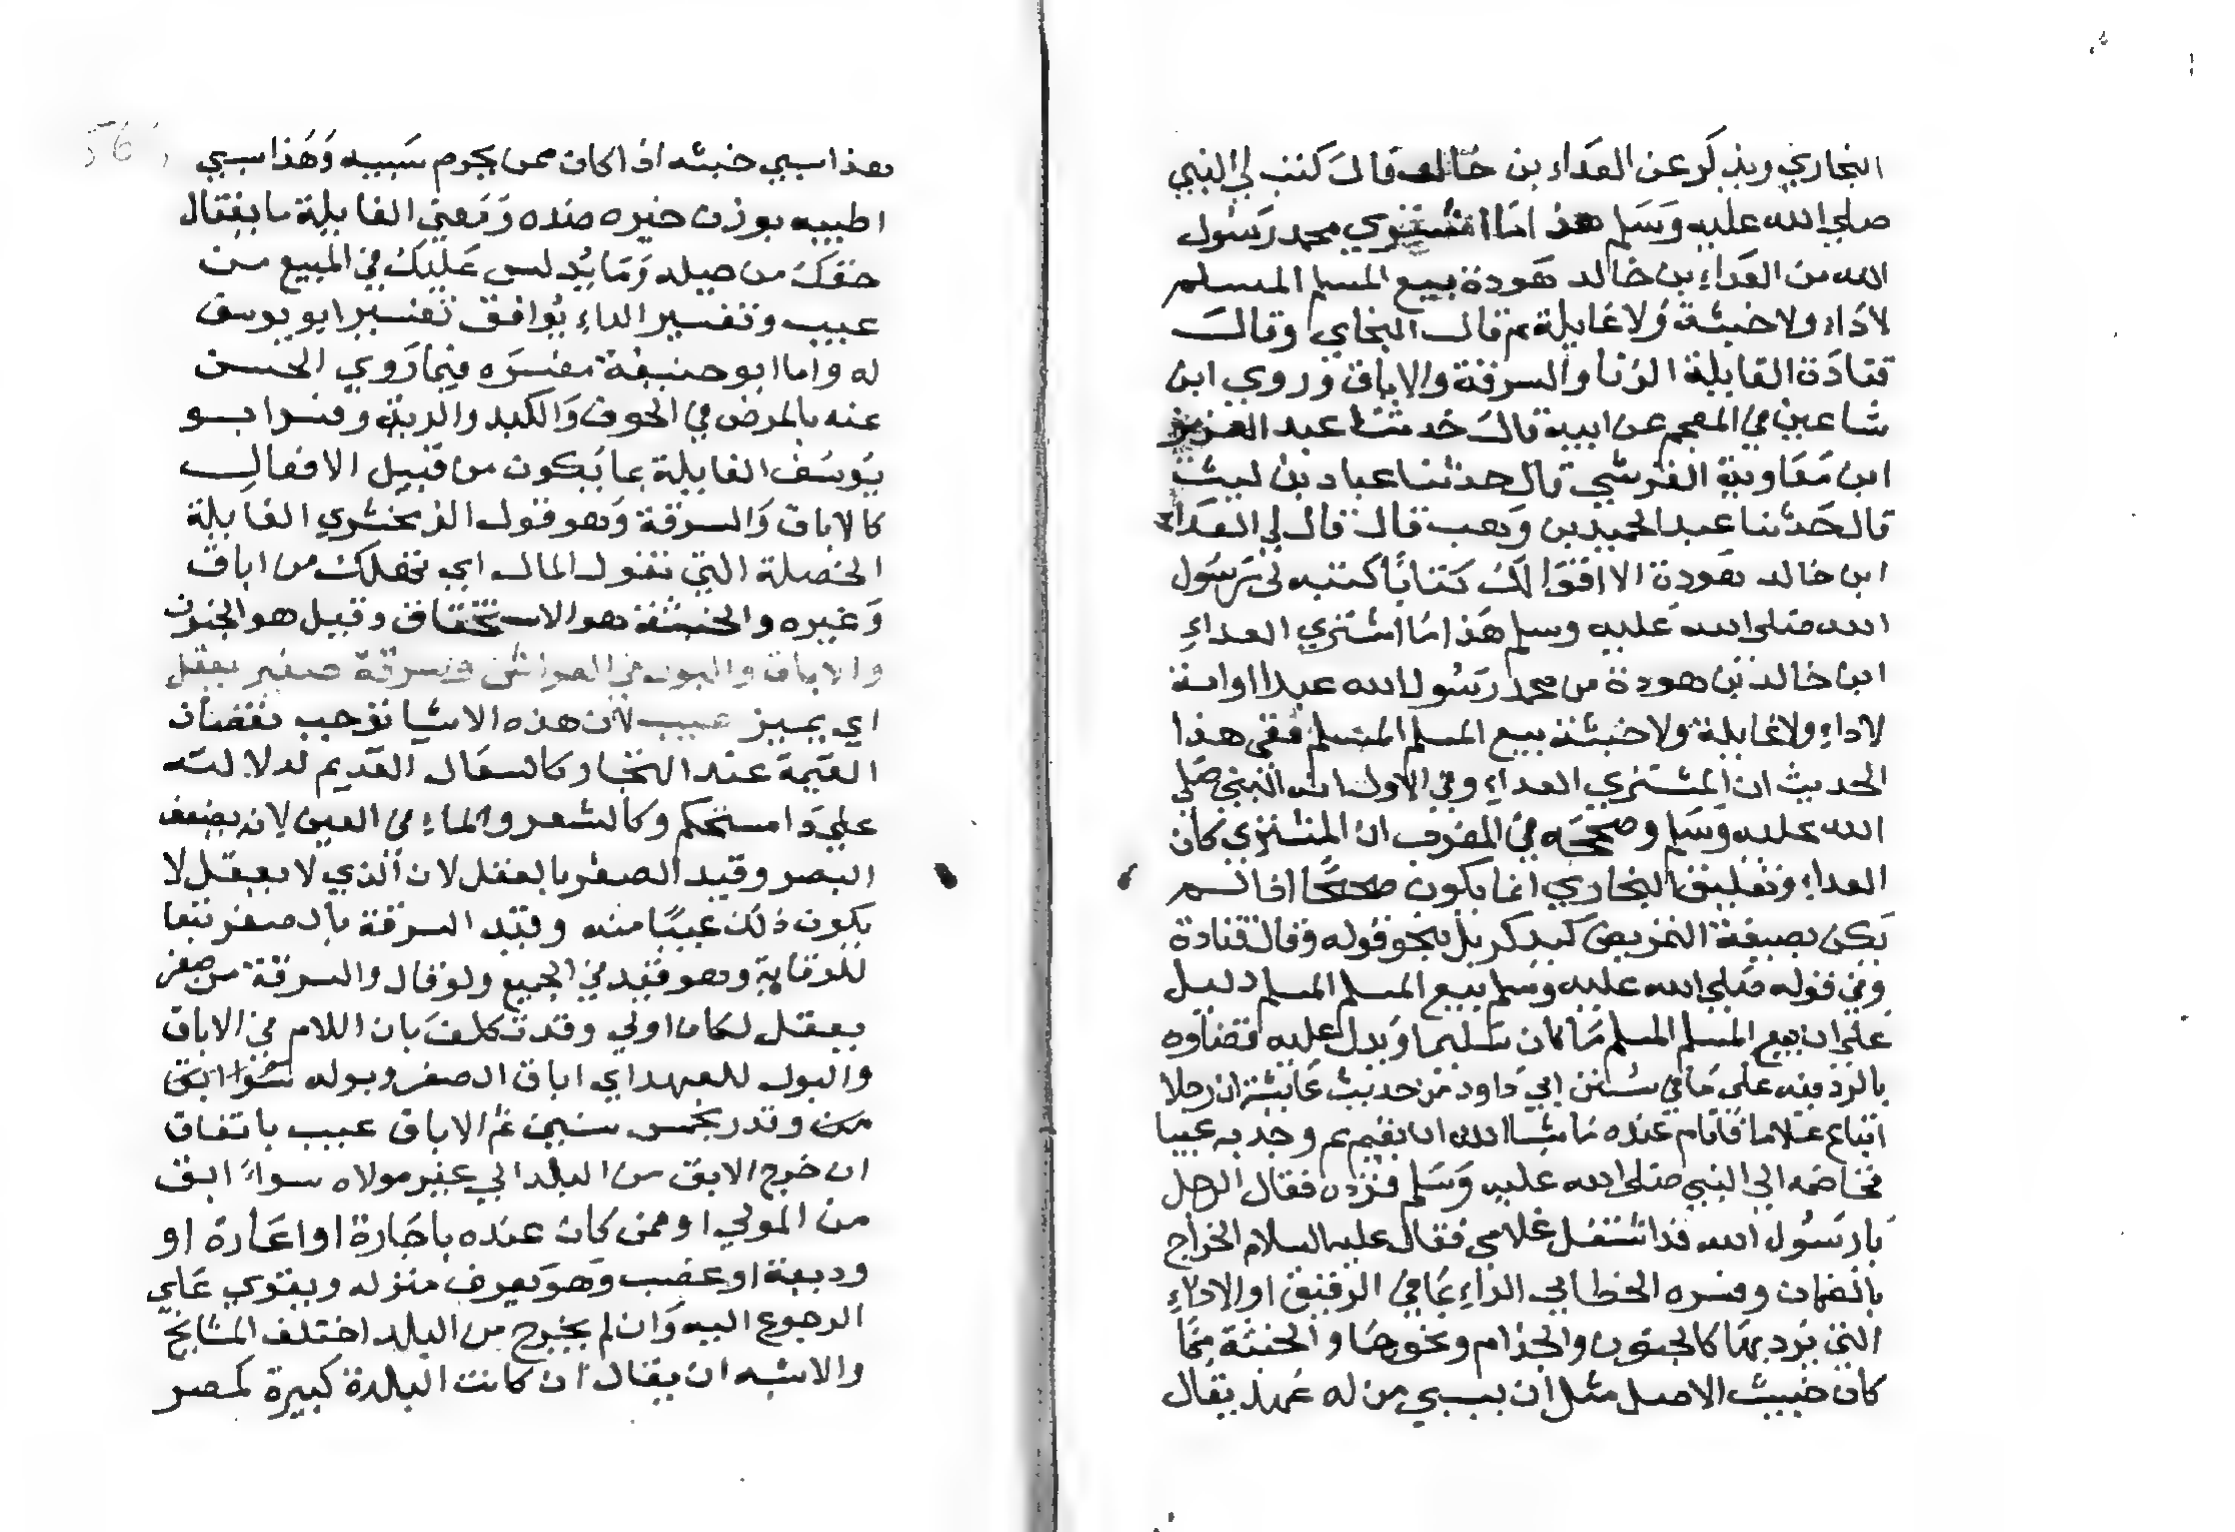 البخاري ويذكر عن العداء بن خالد قال كتب لي النبي
صلى الله عليه وسلم هذا ما اشتري محمد رسول
الله من العداء بن خالد هودة بيع المسلم المسلم
لاداء ولا خبثة ولا غايلة ثم قال البخاي وقال
قتادة الغايلة الزنا والسرقة والاباق وروي ابن
شاهين في المعجم عن ابيه قال حدثنا عبد العزيز
ابن معاوية القرشي قال حدثنا عباد بن ليث
قال حدثنا عبد الحميد بن وهب قال قال لي العداء
ابن خالد هودة الا اقرا لك كتابا كتبه لي رسول
الله صلى الله عليه وسلم هذا ما اشتري العداء
ابن خالد بن هودة من محمد رسول الله عبدا اوامة
لاداء ولا غايلة ولا خبثة بيع المسلم المسلم ففي هذا
الحديث ان المشتري العداء وفي الاول انه النبي صلى
الله عليه وسلم وصححه في المغرب ان المشتري كان
العداء وتعليق البخاري انما يكون صحيحا اذا لم
يكن بصيغة التمريض كيذكر بل نحو قوله وقال قتادة
وفي قوله صلى الله عليه وسلم بيع المسلم المسلم دليل
على ان بيع المسلم المسلم ما كان سليما ويدل عليه قضاوه
بالرد فيه على ما في سنن ابي داود من حديث عائشة ان رجلا
ابتاع غلاما فاقام عنده ما شا الله ان يقيم ثم وجد به عيبا
فخاصمه الي النبي صلى الله عليه وسلم فرده فقال الرجل
يا رسول الله قد استغل غلامي فقال عليه السلام الخراج
بالضمان وفسره الخطابي الداء بما في الرقيق او الادواء
التي يرد بها كالجنون والجذام ونحوها والخبثة بما
كان خبيث الاصل مثل ان يسبي من له عهد يقال
هذا سبي خبثه اذا كان ممن يحرم سبيه وهذا سبي
اطيبه بوزن خيره ضده ومعني الغايلة ما يغتال
حقك من حيله وما يدلس عليك في المبيع من
عيب وتفسير الداء يوافق تفسير ابو يوسف
له واما ابو حنيفة ففسره فيما روي الحسن
عنه بالمرض في الجوف والكبد والرية وفسر ابو
يوسف الغايلة بما يكون من قبيل الافعال
كالاباق والسرقة وهو قول الزمخشري الغايلة
الخصلة التي تغول المال اي تهلك من اباق
وغيره والخبثة هو الاستحقاق وقيل هو الجنون
والاباق والبول في الفراش وسرقة صغير يعقل
اي يميز عيب لان هذه الاشيا توجب نقصان
القيمة عند التجار وكالسعال القديم لدلالته
علي دا مستحكم وكالشعر والماء في العين لانه يضعف
البصر وقيد الصغر بالعقل لان الذي لا يعقل لا
يكون ذلك عيبا منه وقيد السرقة بالصغر تبعا
للوقاية وهو قيد في الجميع ولو قال والسرقة من صغر
يعقل لكان اولي وقد تكلف بان اللام في الاباق
والبول للعهد اي اباق الصغر وبوله
وقدر بخمس سنين ثم الاباق عيب باتفاق
ان خرج الابق من البلد الي غير مولاه سواء ابق
من المولي او ممن كان عنده باجارة او اعارة او
وديعة او غصب وهو يعرف منزله ويقوي على
الرجوع اليه وان لم يخرج من البلد اختلف المشايخ
والاشبه ان يقال ان كانت البلدة كبيرة كمصر